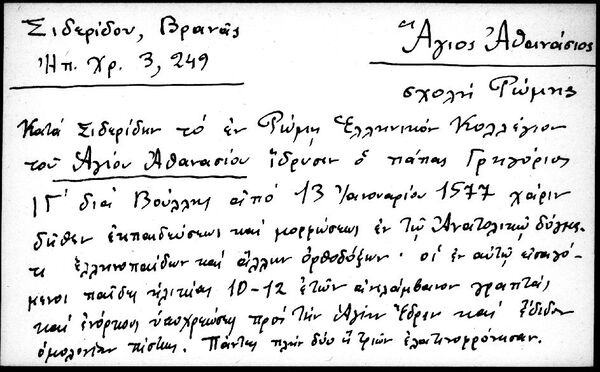 Σιδερίδου, Βρανᾶς
Ἠπ. Χρ. 3, 249
"Ἅγιος Ἀθανάσιος
σχολὴ Ῥώμης
Κατὰ Σιδερίδην τὸ ἐν Ῥώμῃ Ἑλληνικὸν Κολλέγιον
τοῦ Ἁγίου Ἀθανασίου ἵδρυσεν ὁ πάπας Γρηγόριος
ΙΓ' διὰ Βούλλης ἀπὸ 13 Ἰανουαρίου 1577 χάριν
δῆθεν ἐκπαιδεύσεως καὶ μορφώσεως ἐν τῷ Ἀνατολικῷ δόγμα-
τι ἑλληνοπαίδων καὶ ἄλλων ὀρθοδόξων· οἱ ἐν αὐτῷ εἰσαγό-
μενοι παῖδες ἡλικίας 10-12 ἐτῶν ἀνελάμβανον γραπτὰς
καὶ ἐνόρκους ὑποχρεώσεις πρὸς τὴν Ἁγίαν Ἕδραν καὶ ἔδιδον
ὁμολογίαν πίστεως. Πάντες πλὴν δύο ἢ τριῶν ἐλατινοφρόνησαν.